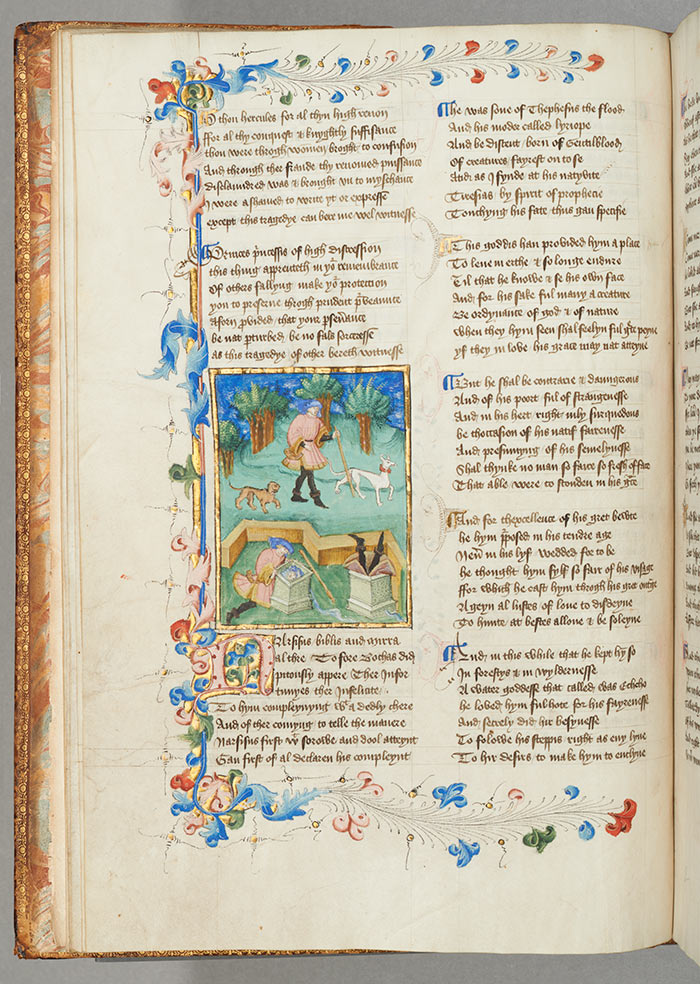 O thou hercules for al thyn high renon
ffor al thy conquest & knyghtly suffisance
thou were throgh women broght to confusion
And through ther fraude thy renomed puissance
disclaundred was & brought vn to myschance
I were ashamed to write yt or expresse
except this tragedye can bere me wel witnesse
Princes pͥncessis of high discression
this thing apprenteth in yoʳ remembrance
Of others fallyng make yoʳ protection
you to preserve throgh prudent pveance
aforn pvided that your pseuance
be nat pturbed be no fals sorceresse
as this tragedye of other bereth witnesse
Narsisus biblis and mirra
al thre To fore Bochas did
pitously appere Ther Infor
tunyes ther Infelicite
To hym compleynyng wᵗ a dedly chere
And of ther comyng to telle the manere
Narsisus first wᵗ sorowe and dool atteynt
Gan first of al declaren his compleynt
The was sone of Thephesus the flood
And his moder called lyriope
And be discent born of Gentilblood
Of creatures fayrest on to se
And as I fynde at his natyvite
Tiresias by spirit of prophecie
Touchyng his fate thus gan specifie
This goddis han provided hym a place
To leve in erthe & so longe endure
Til that he knowe & se his own face
And for his sake ful many a creature
Be ordynance of god & of nature
When they hym seen shal feelyn ful gret peyne
yf they in love his grace may nat atteyne
But he shal be contrarie & daungerous
And of his poort ful of strangenesse
And in his hert right inly surquedous
be thoccasion of his natif fairenesse
And presumyng of his semelynesse
Shal thynke no man so faire so fresh of face
That able were to stonden in his gͣce
And for thexcellence of his gret bewte
he hym pposed in his tendre age
Neuͬ in his lyf wedded for to be
he thought hym sylf so fair of his visage
ffor which he cast hym throgh his gret outrage
Ageyn al lustes of love to disdeyne
To hunte at bestes allone & be soleyne
And in this while that he kept hy so
In forestys & in wyldernesse
A water goddesse that called was Echcho
he loved hym ful hote for his fayrenesse
And secrely did hir besynesse
To folowe his steppis right as eny lyne
To hir desirs to make hym to enclyne